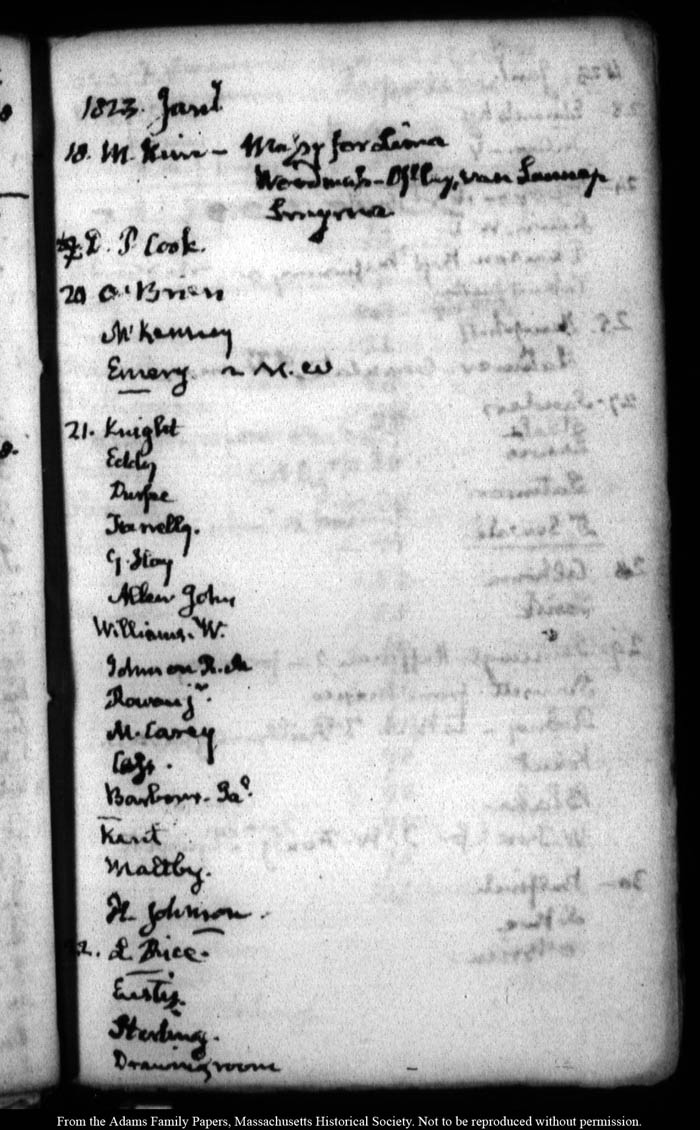 1823. Jany.
18. M. Kim - for Lima
Woodmass - van Lennep
Smyrna
D. P. Cook.
20 O'Brien
McKenney
Emery
21. Knight
Eddy
Durfee
Farrelly.
G. Hay
Allen John
Williams. W.
Johnson R. M
Rowan jr.
M. Carey
Cass.
Barbour. Ja.s
Kent
Maltby.
H. Johnson.
22. L Rice.
Eustis.
Sterling.
Drawingroom
From the Adams Family Papers, Massachusetts Historical Society. Not to be reproduced without permission.